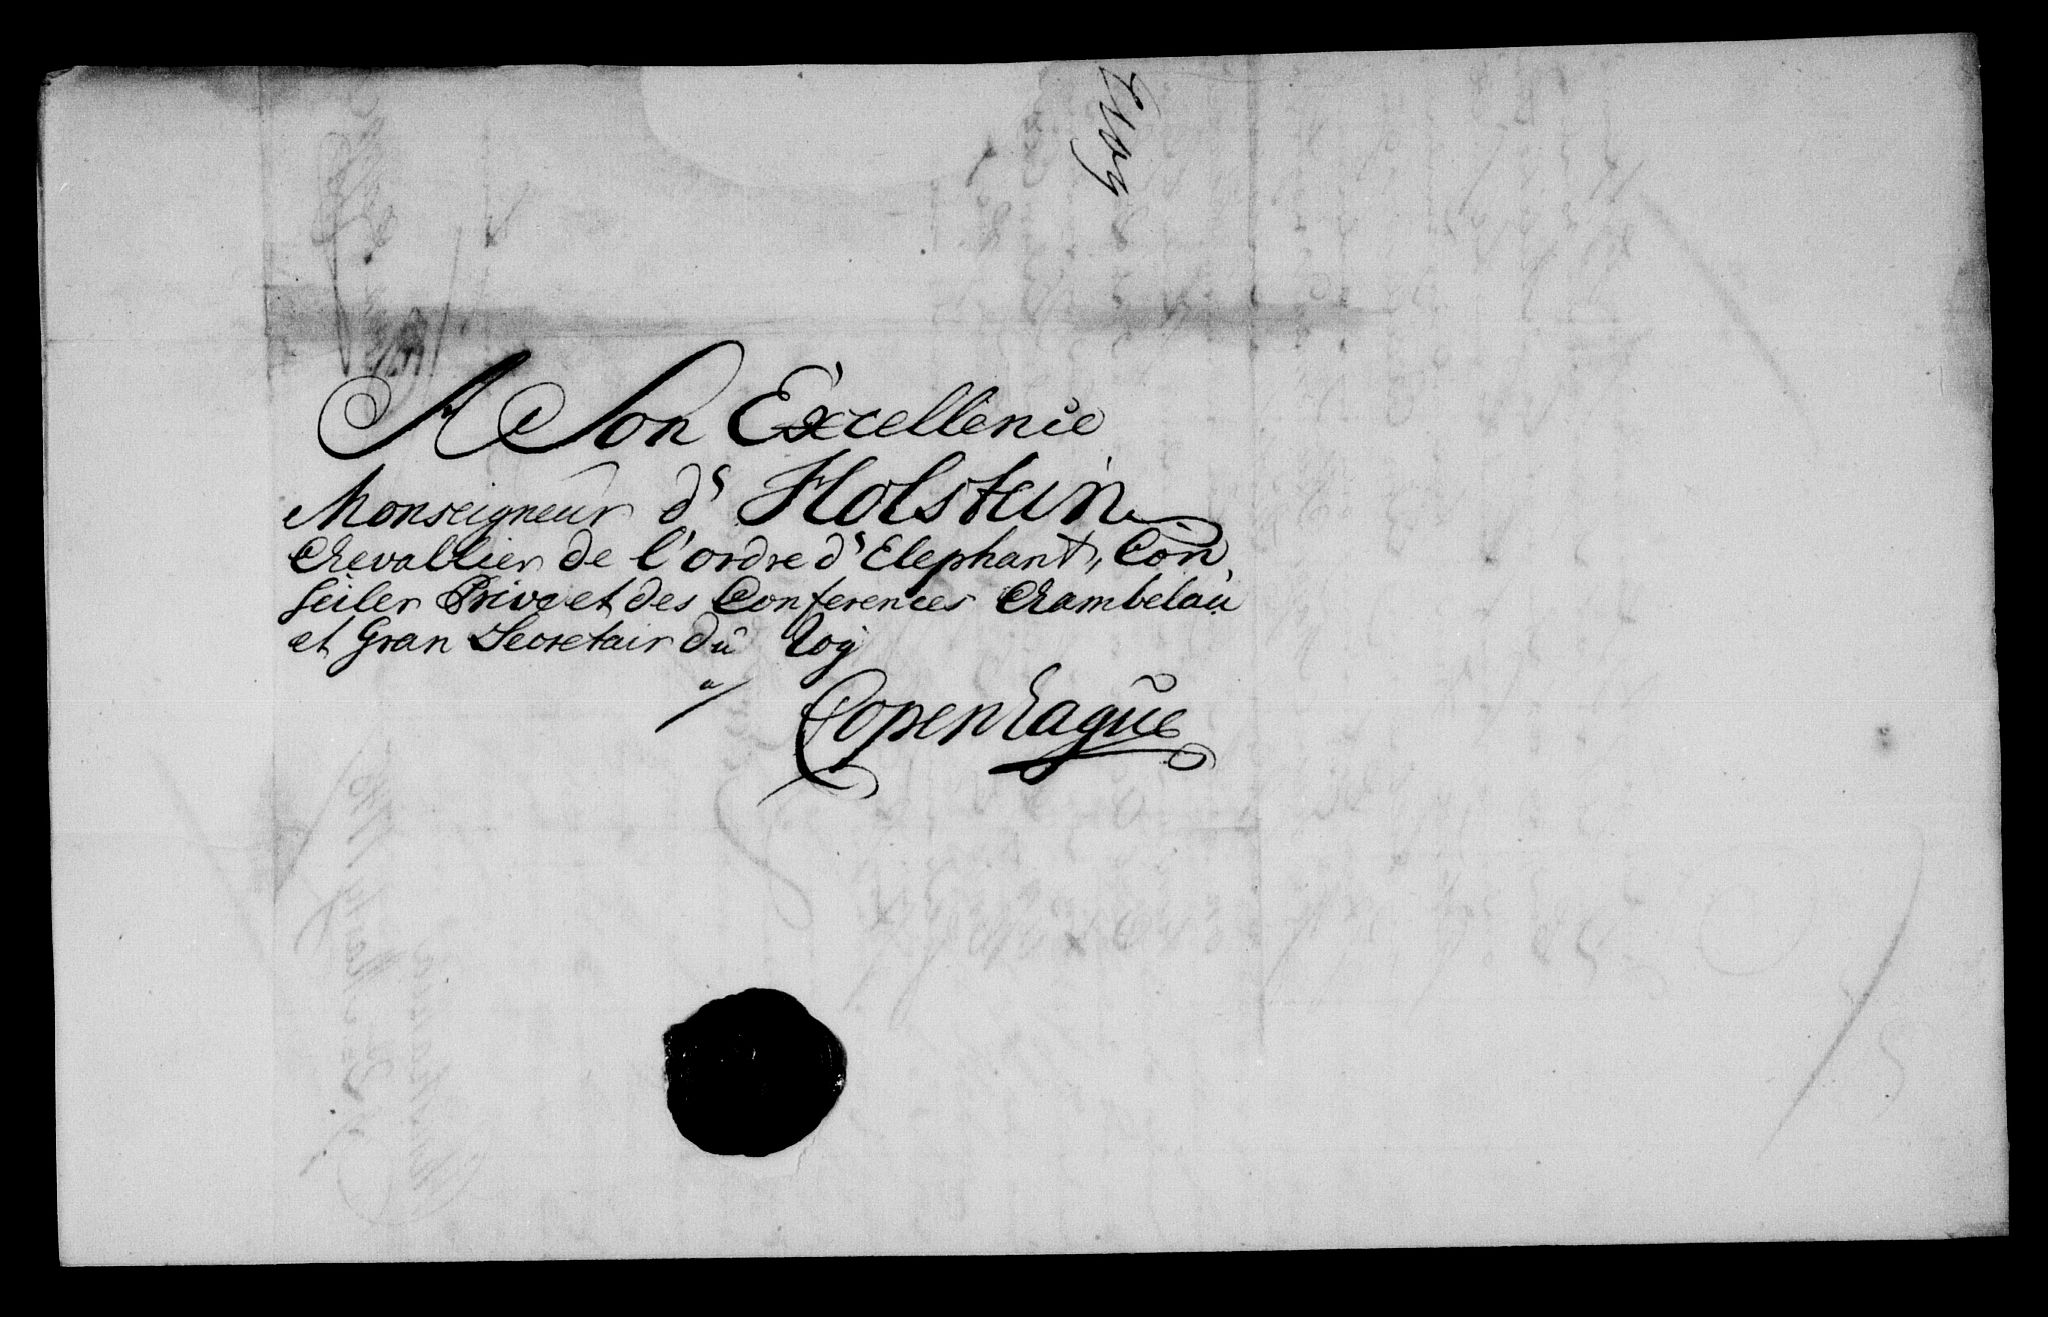 A Son Excellence
Monseigneur d' Holstein
Chevallier de l'ordre d' Elephant, Con,
seiler Prive et des Conferences Chambelan
et Gran Secretair dũ Roÿ
a/
Copenhagũe